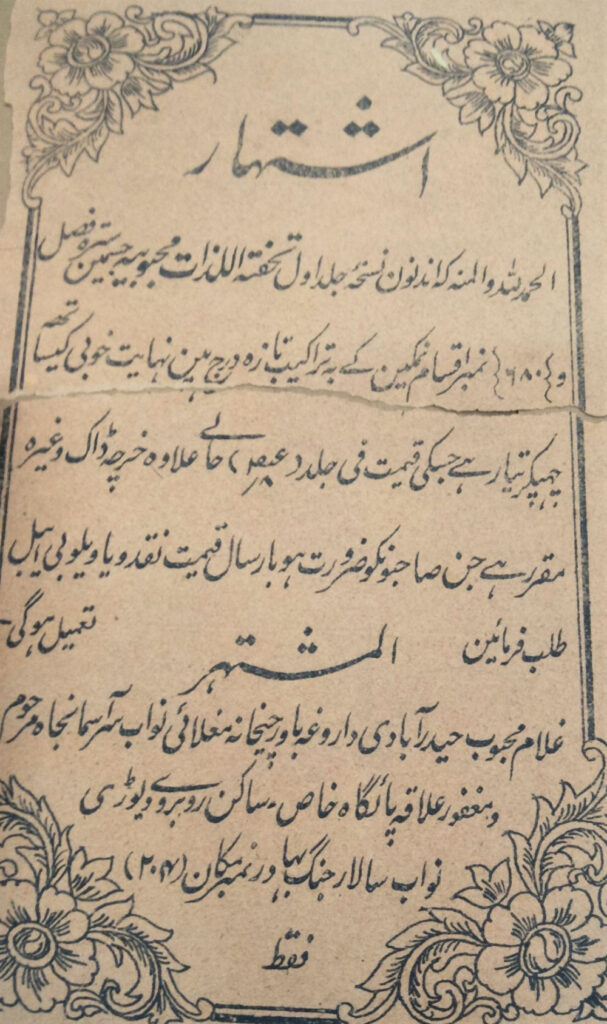 اشتہار
الحمد للہ والمنہ کہ اندنون نسخۂ جلد اول تحفتہ اللذات محبوبیہ جسمین سترہ فصل
و{٦٨٠} نمبر اقسام نمکین کے بہ تراکیب تازہ درج ہین نہایت خوبی کیساتھ
چھپکر تیار ہے جسکی قیمت فی جلد حالے علاوہ خرچہ ڈاک وغیرہ
مقرر ہے جن صاحبونکو ضرورت ہو بارسال قیمت نقد و یا ویلو پی ایبل
طلب فرمائین تعمیل ہوگی-
المشتہر
غلام محبوب حیدرآبادی داروغہ باورچیخانہ مغلائی نواب سر آسمانجاہ مرحوم
و مغفور علاقہ پائگاہ خاص- ساکن روبروے دیوڑی
نواب سالار جنگ بہادر نمبر مکان (٢٠٤)
فقط